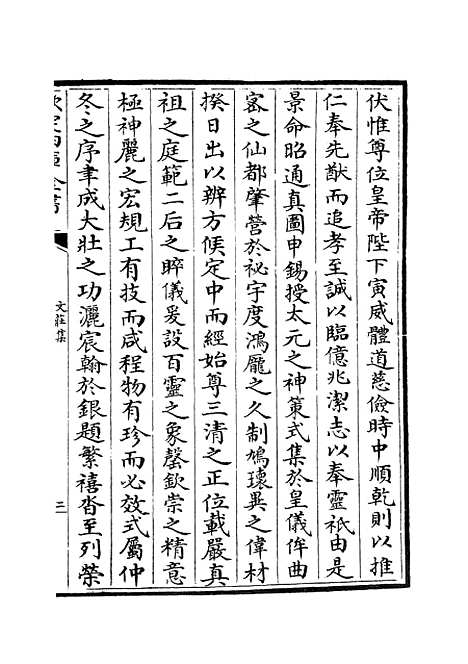 伏惟尊位皇帝陛下寅威體道慈儉時中順乾則以推
仁奉先猷而追孝至誠以臨億兆潔志以奉靈祇由是
景命昭通真圖申錫授太元之神策式集於皇儀侔曲
密之仙都肇營於祕宇度鴻龎之久制鳩瓌異之偉材
揆日出以辨方候定中而經始尊三清之正位載嚴真
祖之庭範二后之睟儀爰設百靈之象罄欽崇之精意
極神麗之宏規工有技而咸程物有珍而必效式屬仲
冬之序聿成大壯之功灑宸翰於銀題繁禧沓至列榮
文莊集
三